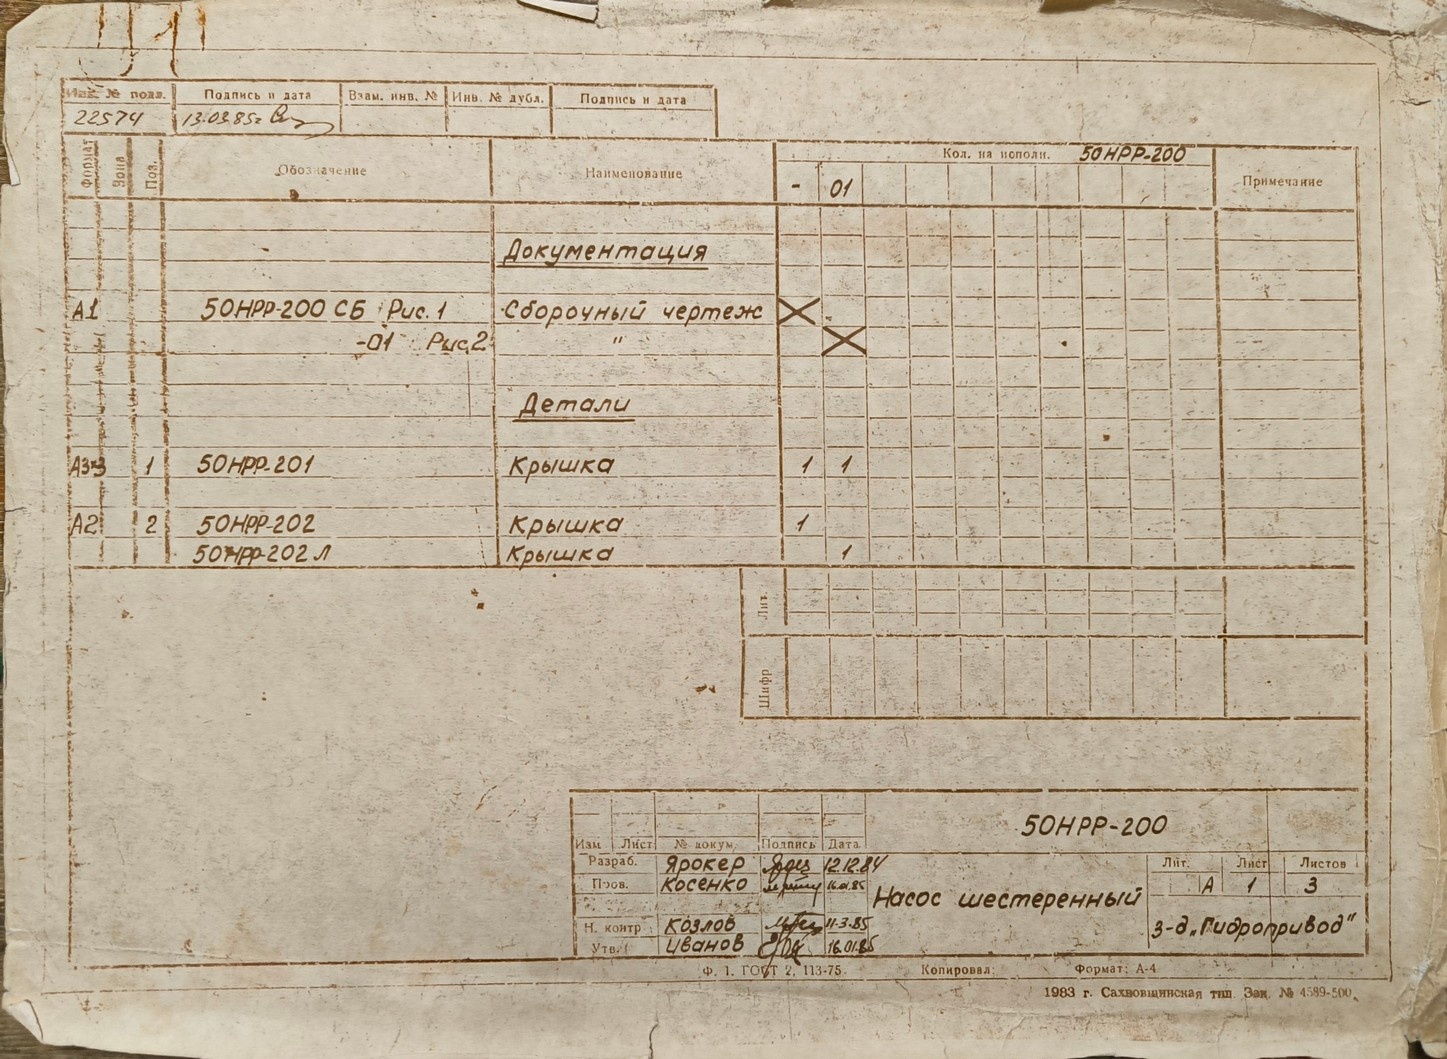 Инв. № подл. Подпись и дата Взам. инв. № Инв. № дубл. Подпись и дата
22574 13.03.85г
Формат Зона Поз. Обозначение Наименование Кол. на исполн. 50НРР-200 Примечание
- 01
Документация
А1 50НРР-200 СБ Рис. 1 Сборочный чертеж
-01 Рис. 2 "
Детали
А3×3 1 50НРР-201 Крышка 1 1
А2 2 50НРР-202 Крышка 1
50НРР-202 Л Крышка 1
Лит.
Шифр
50НРР-200
Изм Лист № докум. Подпись Дата
Разраб. Ярокер 12.12.84 Лит. Лист Листов
Пров. Косенко 16.01.85 А 1 3
Насос шестеренный
Н. контр Козлов 11.3.85 З-д „Гидропривод"
Утв. Иванов 16.01.85
Ф. 1. ГОСТ 2. 113-75 Копировал: Формат: А-4
1983 г. Сахновщинская тип. Зак. № 4589-500